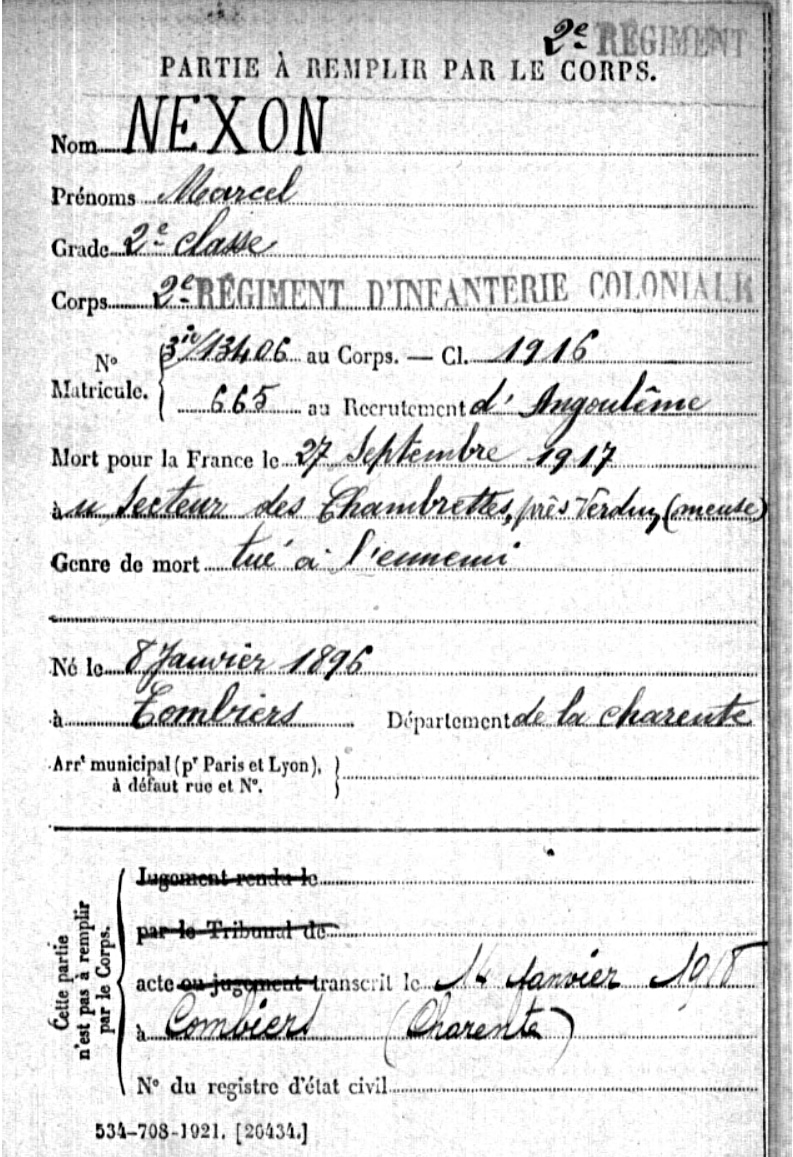 2e RÉGIMENT
PARTIE À REMPLIR PAR LE CORPS.
Nom NEXON
Prénoms Marcel
Grade 2e classe
Corps 2e RÉGIMENT D'INFANTERIE COLONIALE
N° Matricule. 3ie/13406 au Corps. — Cl. 1916
665 au Recrutement d'Angoulême
Mort pour la France le 27 Septembre 1917
au Secteur des Chambrettes, près Verdun, (meuse)
Genre de mort tué à l'ennemi
Né le 8 Janvier 1896
à Combiers Département de la charente
Arrt municipal (pr Paris et Lyon),
à défaut rue et N°.
Cette partie
n'est pas à remplir
par le Corps.
Jugement rendu le
par le Tribunal de
acte ou jugement transcrit le 14 Janvier 1918
à Combiers (Charente)
N° du registre d'état civil
534-708-1921. [26434.]